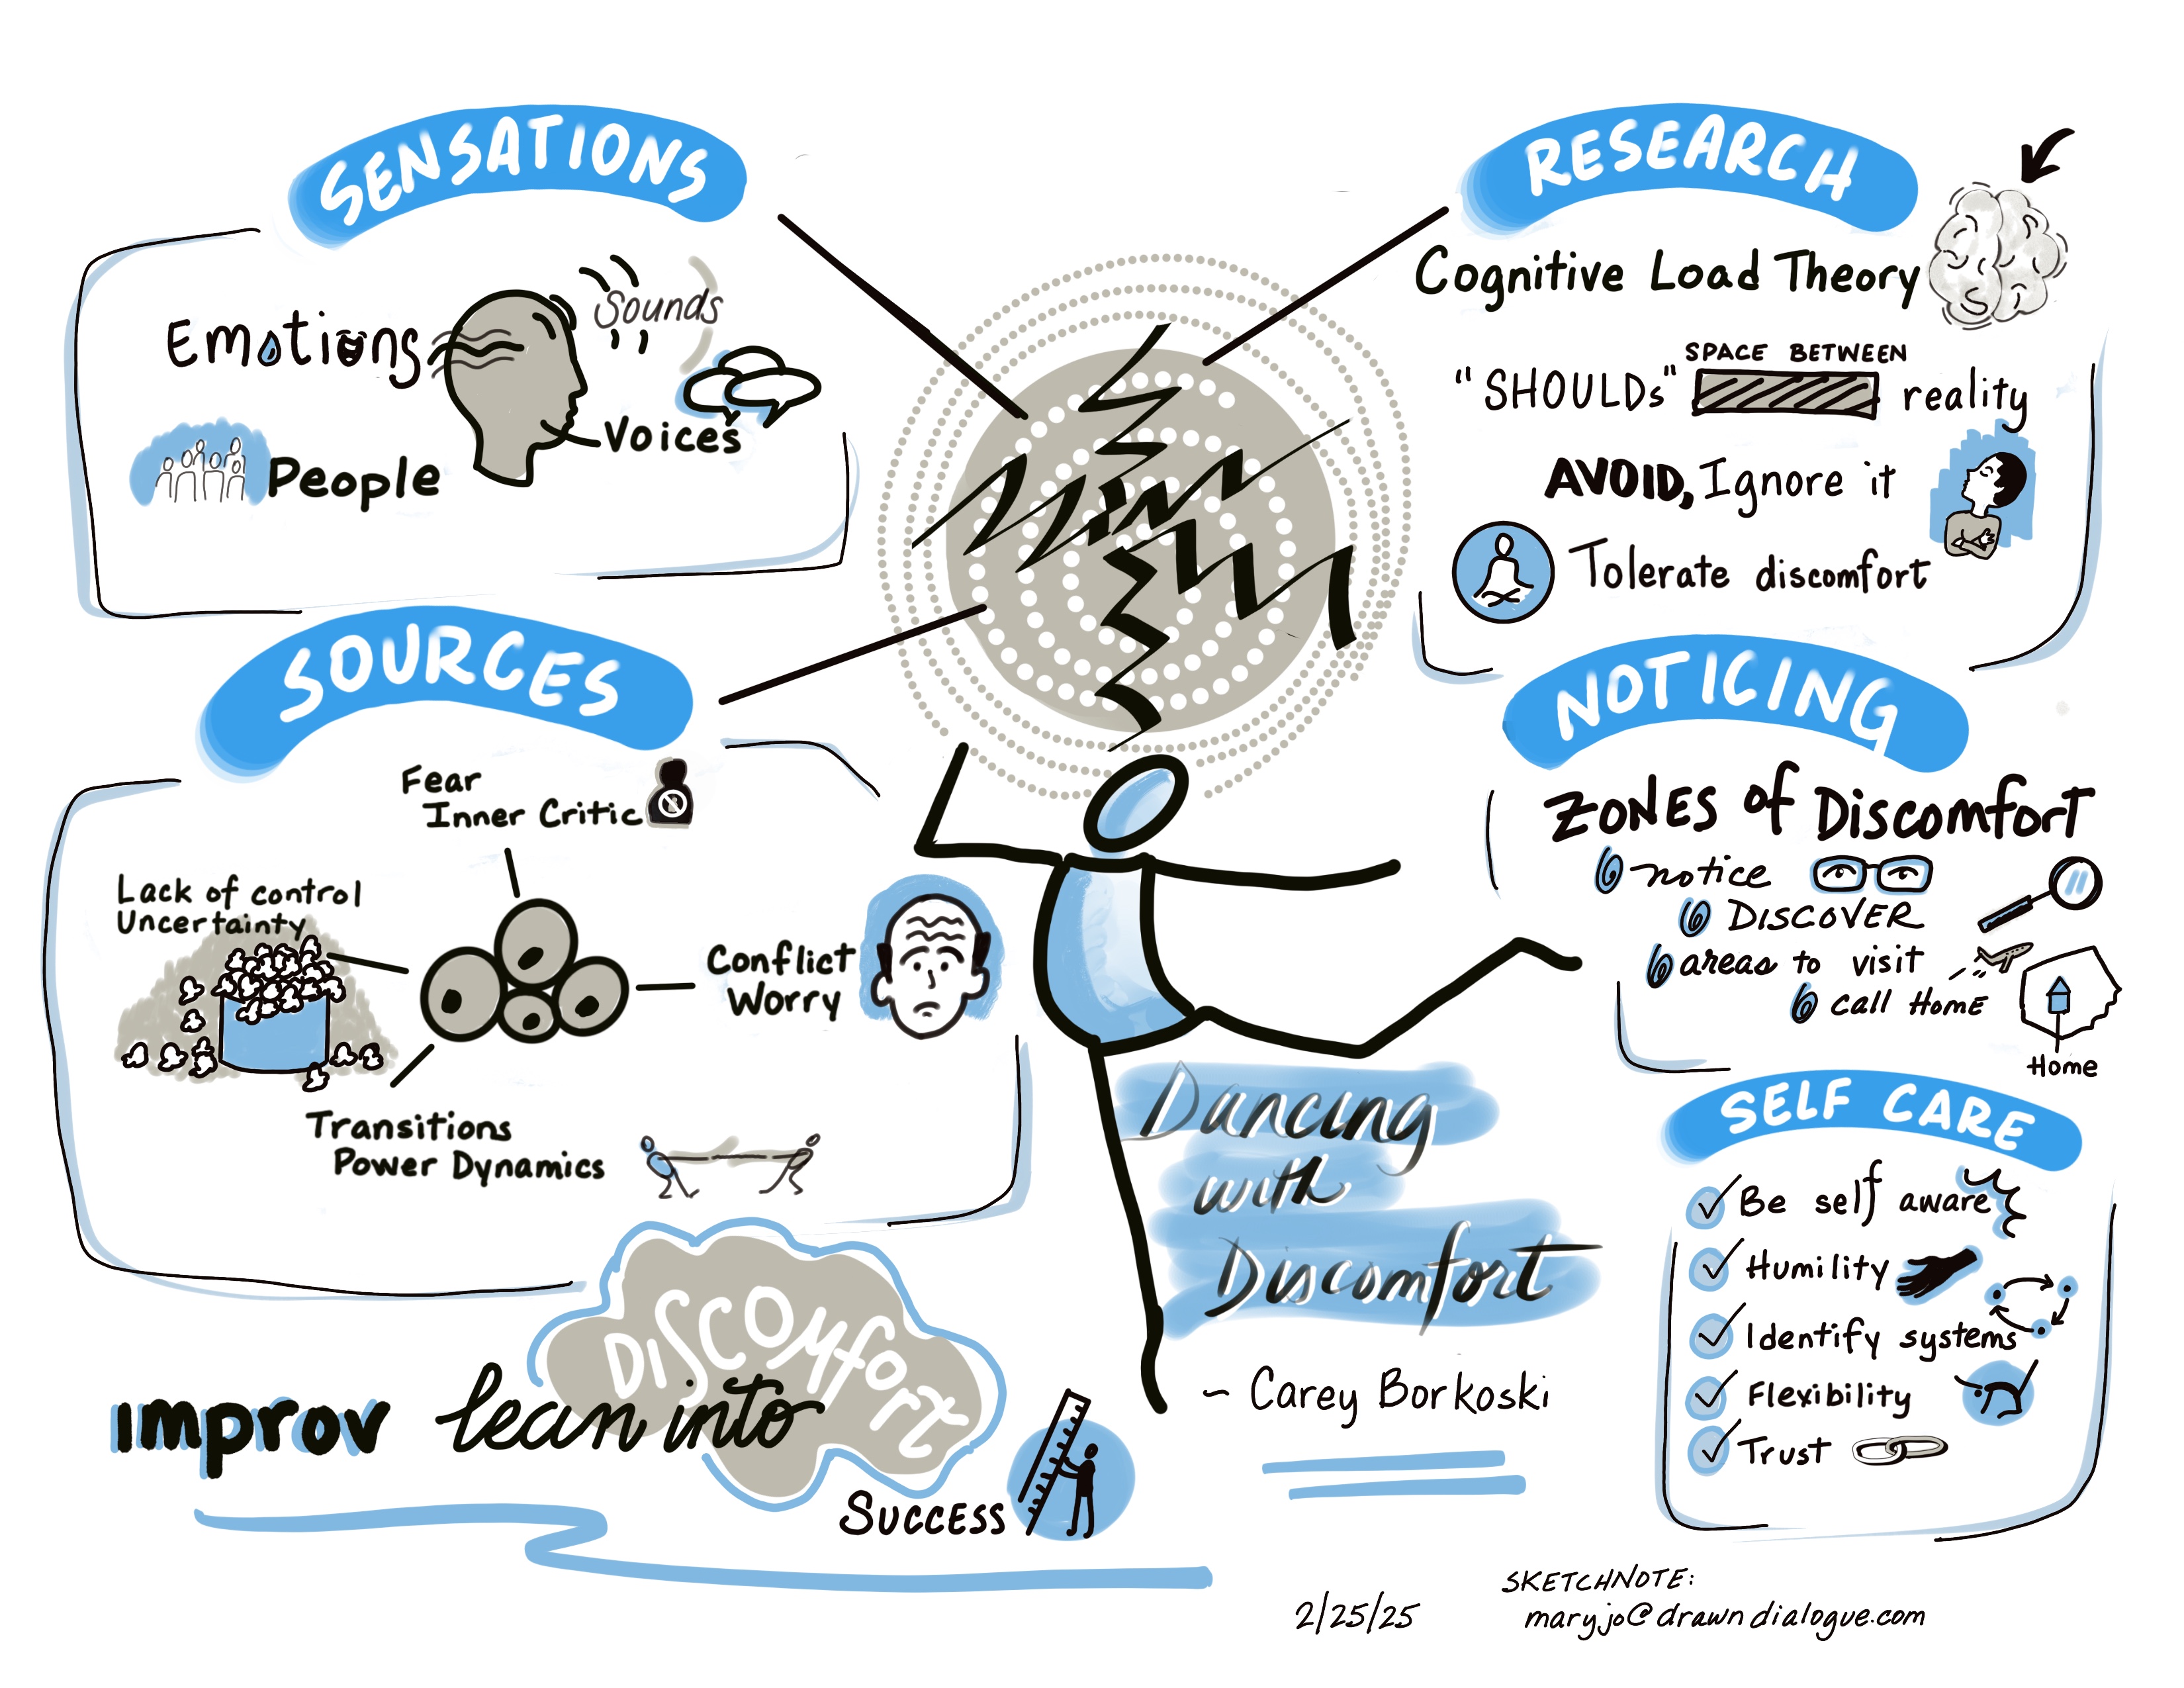 SENSATIONS
Emotions
Sounds
Voices
People
RESEARCH
Cognitive Load Theory
SPACE BETWEEN
"SHOULDs" reality
AVOID, Ignore it
Tolerate discomfort
SOURCES
Fear
Inner Critic
Lack of control
Uncertainty
Conflict
Worry
Transitions
Power Dynamics
NOTICING
ZONES of Discomfort
notice
DISCOVER
areas to visit
call Home
Home
SELF CARE
Be self aware
Humility
Identify systems
Flexibility
Trust
Dancing
with
Discomfort
~ Carey Borkoski
DISCOMfort
improv lean into
SUCCESS
2/25/25
SKETCHNOTE:
maryjo@drawndialogue.com